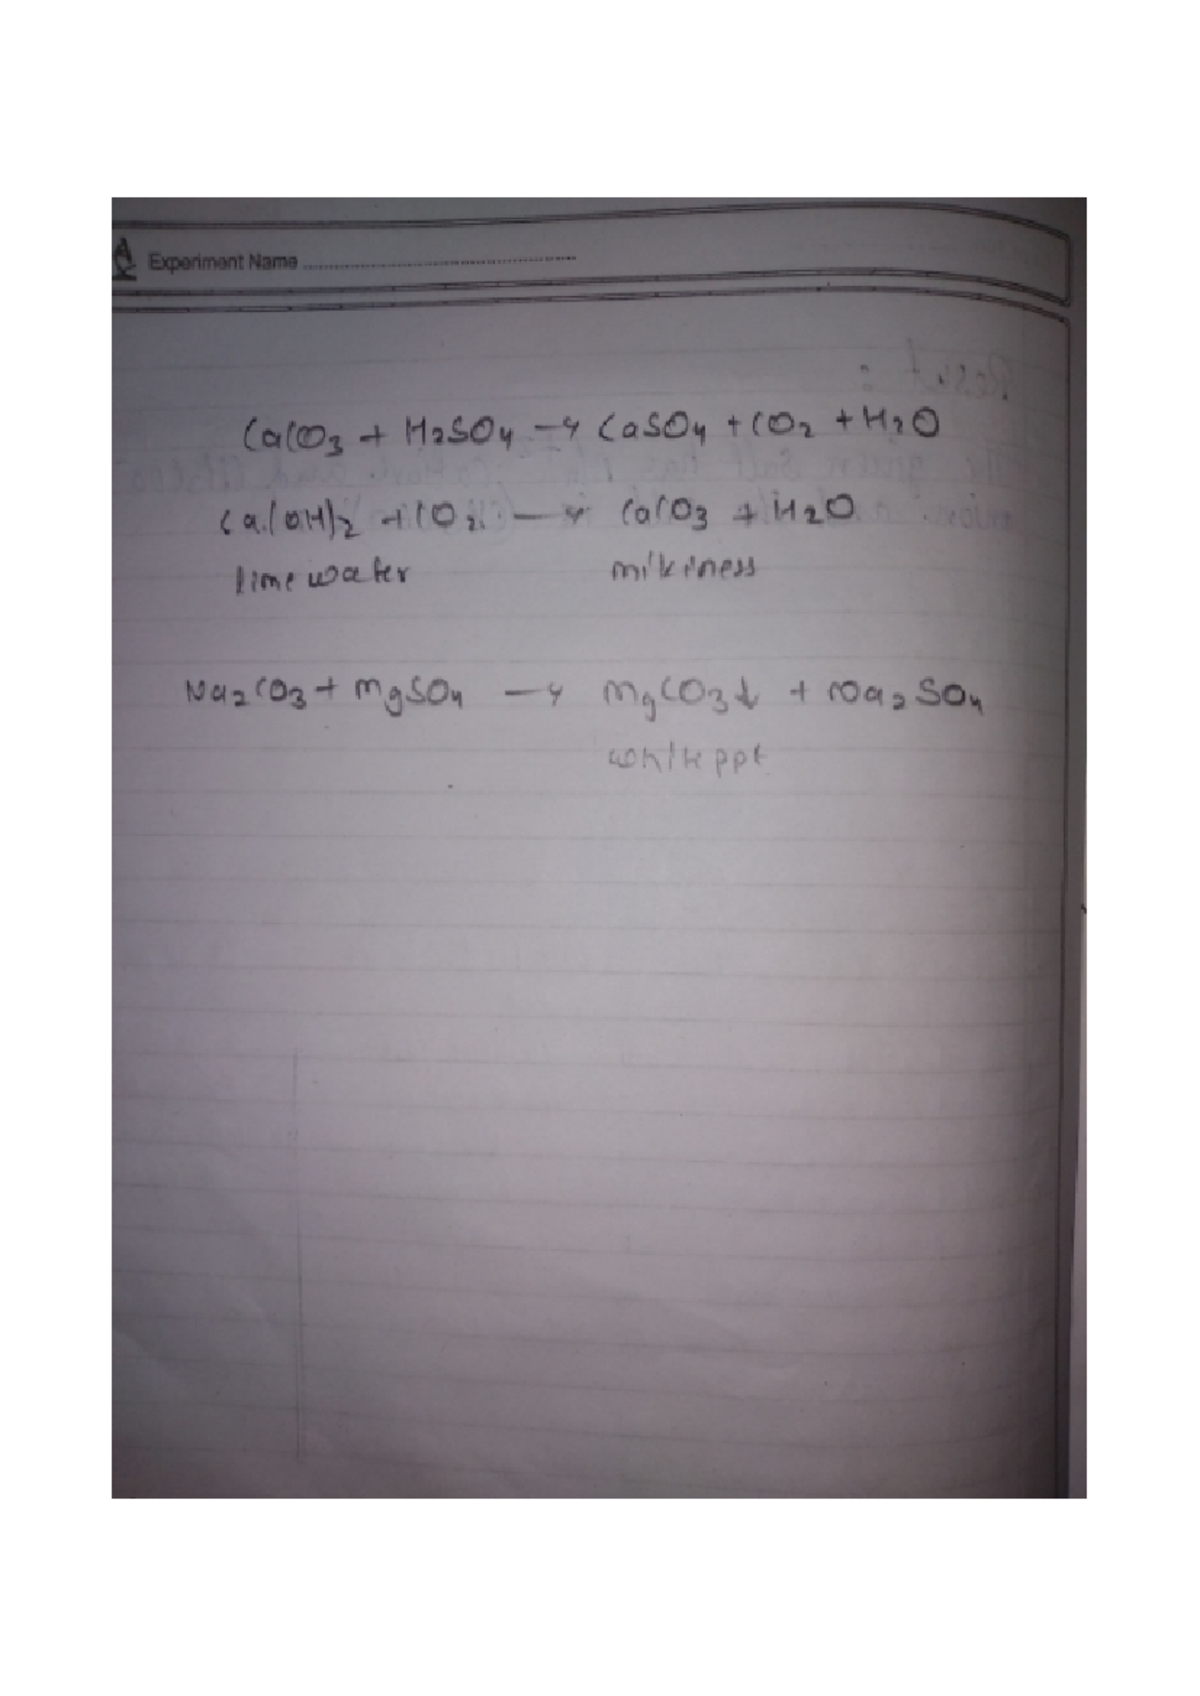 Experiment Name
CaCO3 + H2SO4 → CaSO4 + CO2 + H2O
Ca(OH)2 + CO2 → CaCO3 + H2O
lime water milkiness
Na2CO3 + MgSO4 → MgCO3↓ + Na2SO4
white ppt